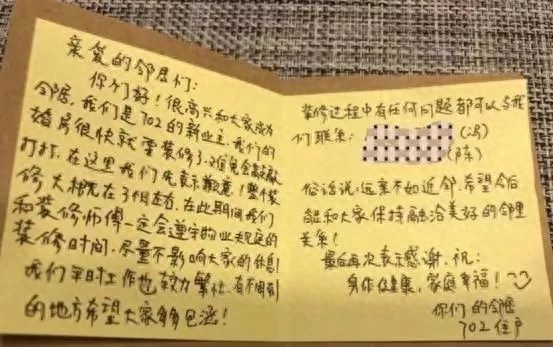 亲爱的邻居们：
你们好！很高兴和大家成为
邻居，我们是702的新业主，我们的
婚房很快就要装修了，难免会敲敲
打打，在这里我们先表示歉意！整个装
修大概在3个月左右，在此期间我们
和装修师傅一定会遵守物业规定的
装修时间，尽量不影响大家的休息！
我们平时工作也较为繁忙，有不周到
的地方希望大家多多包涵！
装修过程中有任何问题都可以与我
们联系：
(冯)
(陈)
俗话说：远亲不如近邻，希望今后
能和大家保持融洽美好的邻里
关系！
最后再次表示感谢，祝：
身体健康，家庭幸福！
你们的邻居
702住户